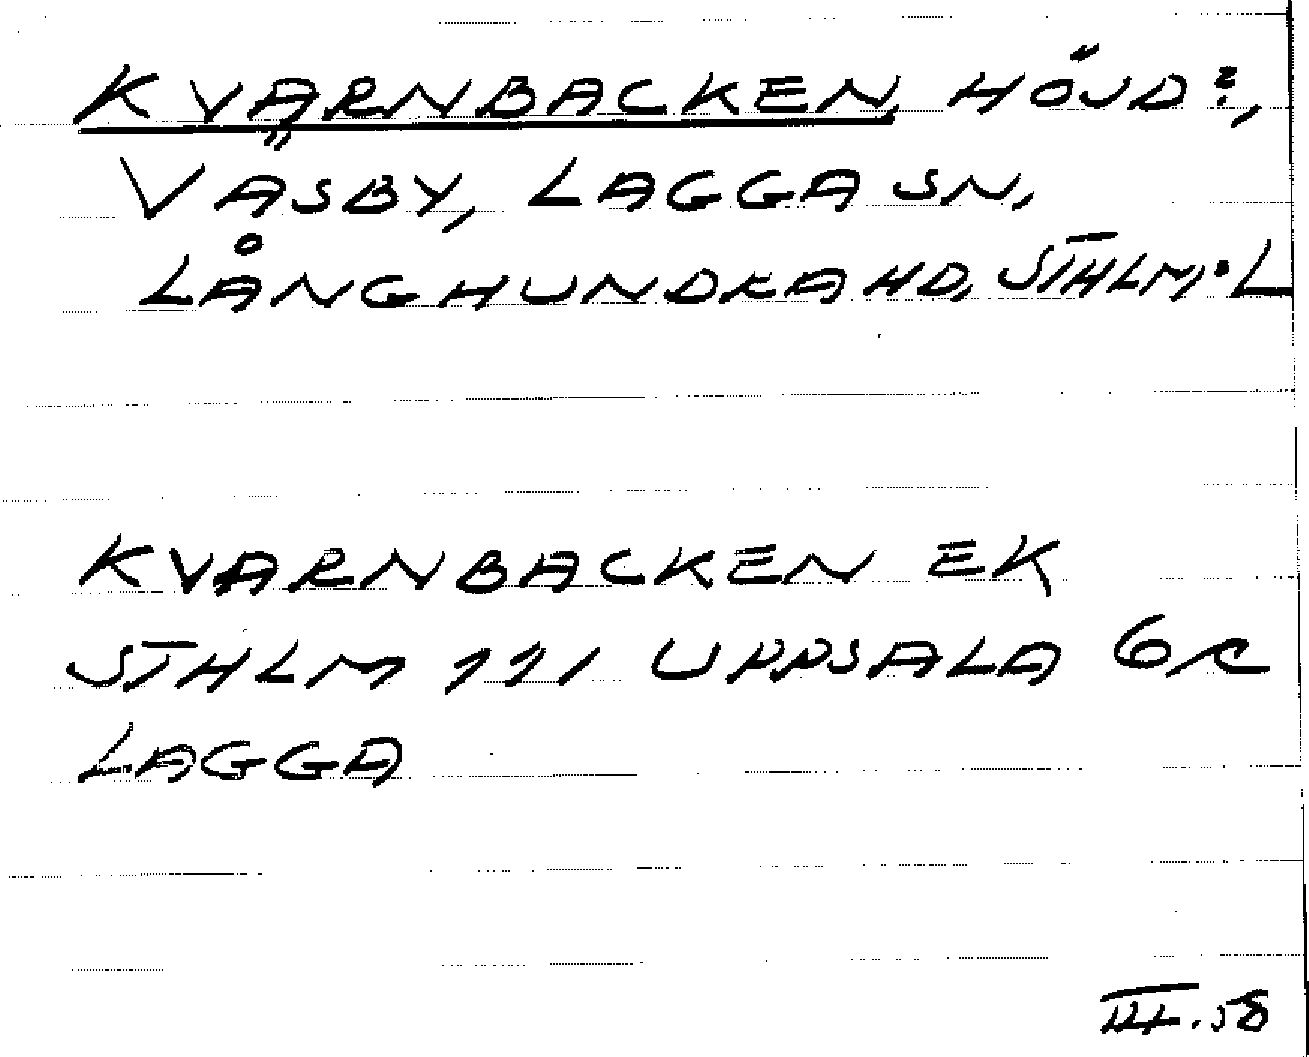 KVARNBACKEN, HÖJD?,
VÄSBY, LAGGA SN,
LÅNGHUNDRA HD, STHLM:L
KVARNBACKEN EK
STHLM 111 UPPSALA 6c
LAGGA
III.58